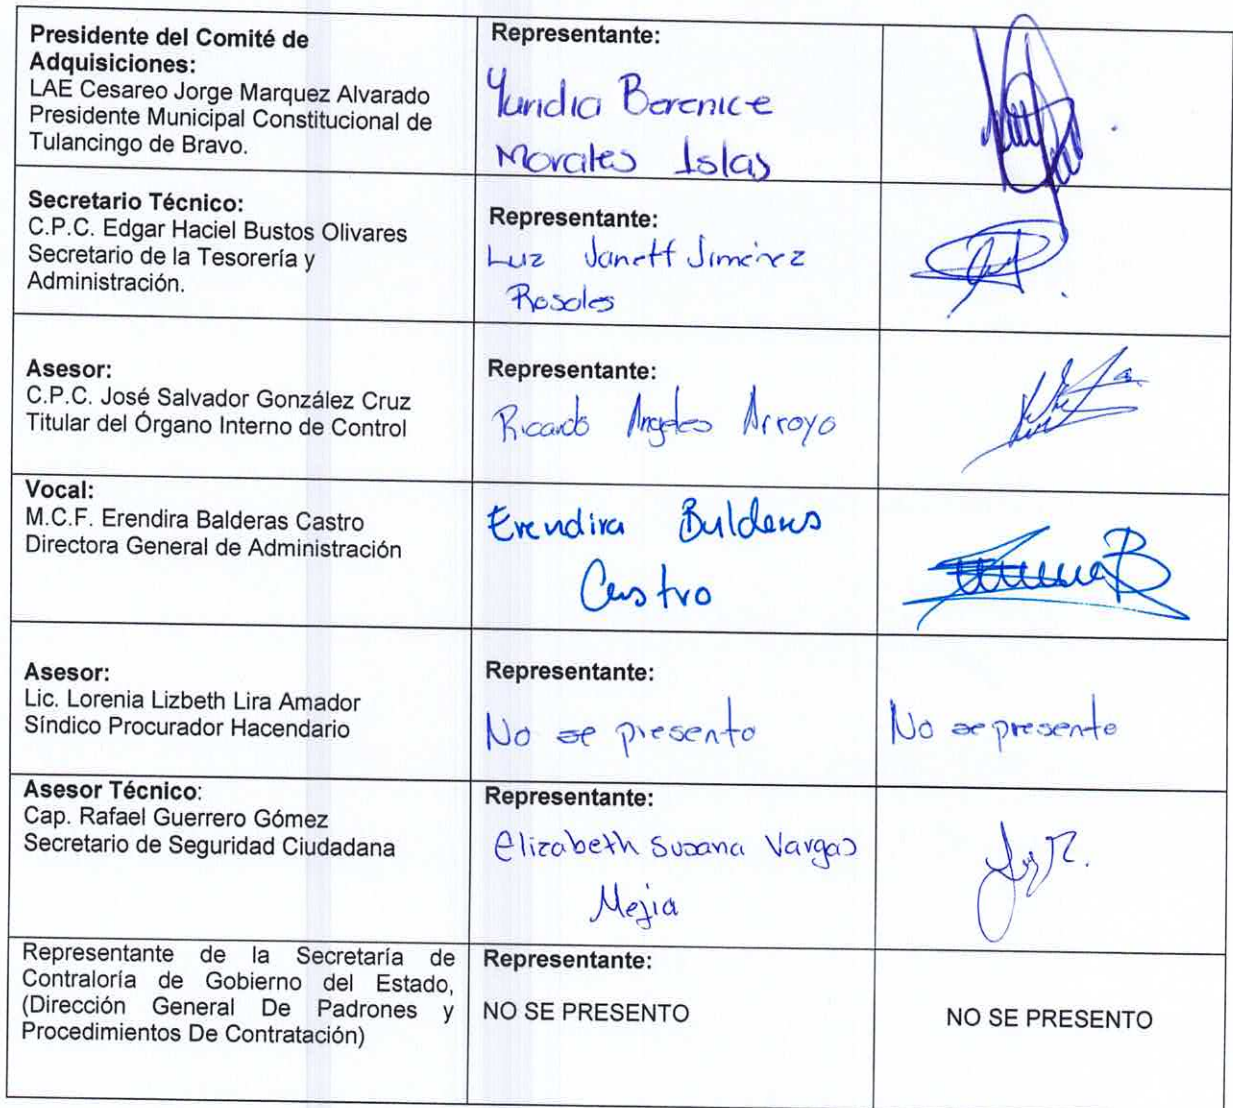 Presidente del Comité de
Adquisiciones:
LAE Cesareo Jorge Marquez Alvarado
Presidente Municipal Constitucional de
Tulancingo de Bravo.
Representante:
Yuridia Berenice
Morales Islas
Secretario Técnico:
C.P.C. Edgar Haciel Bustos Olivares
Secretario de la Tesorería y
Administración.
Representante:
Luz Janett Jimenez
Rosales
Asesor:
C.P.C. José Salvador González Cruz
Titular del Órgano Interno de Control
Representante:
Ricardo Angeles Arroyo
Vocal:
M.C.F. Erendira Balderas Castro
Directora General de Administración
Erendira Balderas
Castro
Asesor:
Lic. Lorenia Lizbeth Lira Amador
Síndico Procurador Hacendario
Representante:
No se presento
No se presento
Asesor Técnico:
Cap. Rafael Guerrero Gómez
Secretario de Seguridad Ciudadana
Representante:
Elizabeth Susana Vargas
Mejia
Representante de la Secretaría de
Contraloría de Gobierno del Estado,
(Dirección General De Padrones y
Procedimientos De Contratación)
Representante:
NO SE PRESENTO
NO SE PRESENTO